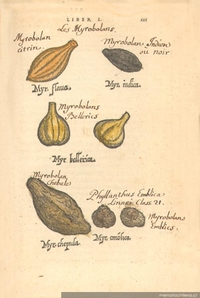 LIBER. I.
Les Myrobolans.
Myrobolan
citrin.
Myrobolan Indien
ou noir
Myr. flaua.
Myr. indica.
Myrobolans
Bellerics
Myr. bellericæ
Myrobolan
Chebule
Phyllanthus Emblica
Linnæi Class 21.
Myrobolans
Emblics.
Myr. chepula.
Myr. emblica.